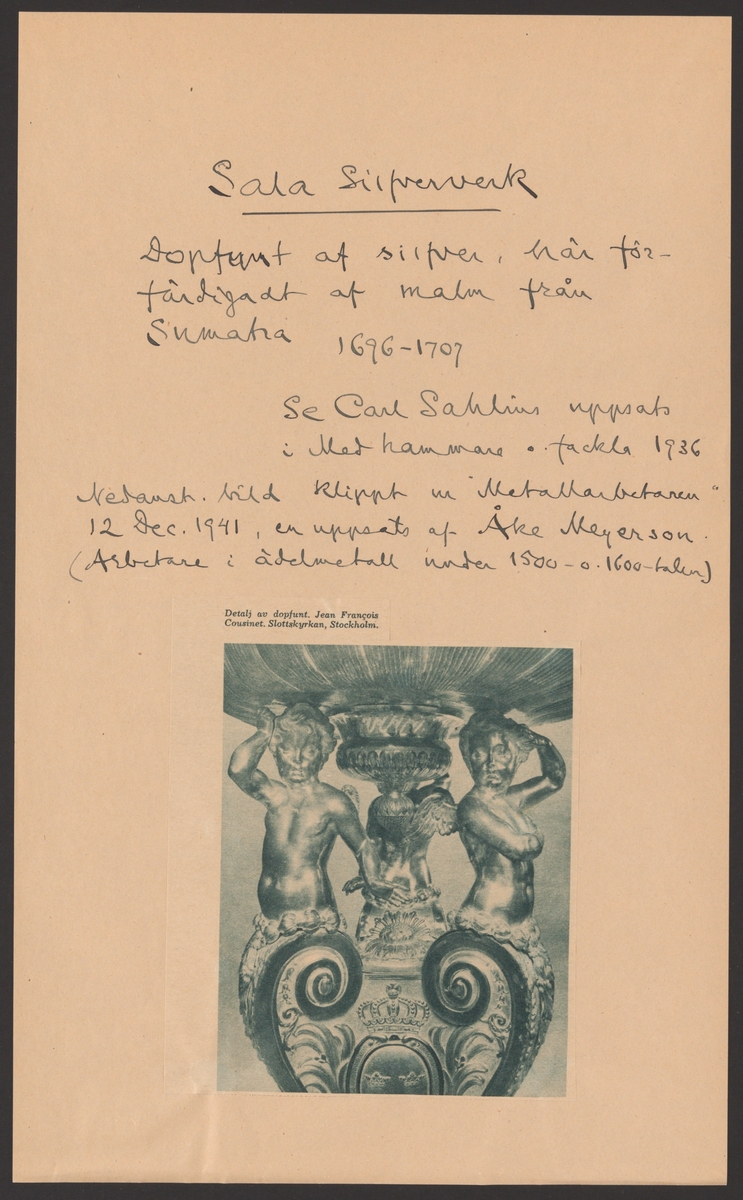 Sala Silfververk
Dopfunt af silfver, här för-
färdigadt af malm från
Sumatra 1696-1707
Se Carl Sahlins uppsats
i Med hammare o. fackla 1936
Nedanst. bild klippt ur "Metallarbetaren"
12 Dec. 1941, en uppsats af Åke Meyerson.
(Arbetare i ädelmetall under 1500- o. 1600-talen)
Detalj av dopfunt. Jean François
Cousinet. Slottskyrkan, Stockholm.